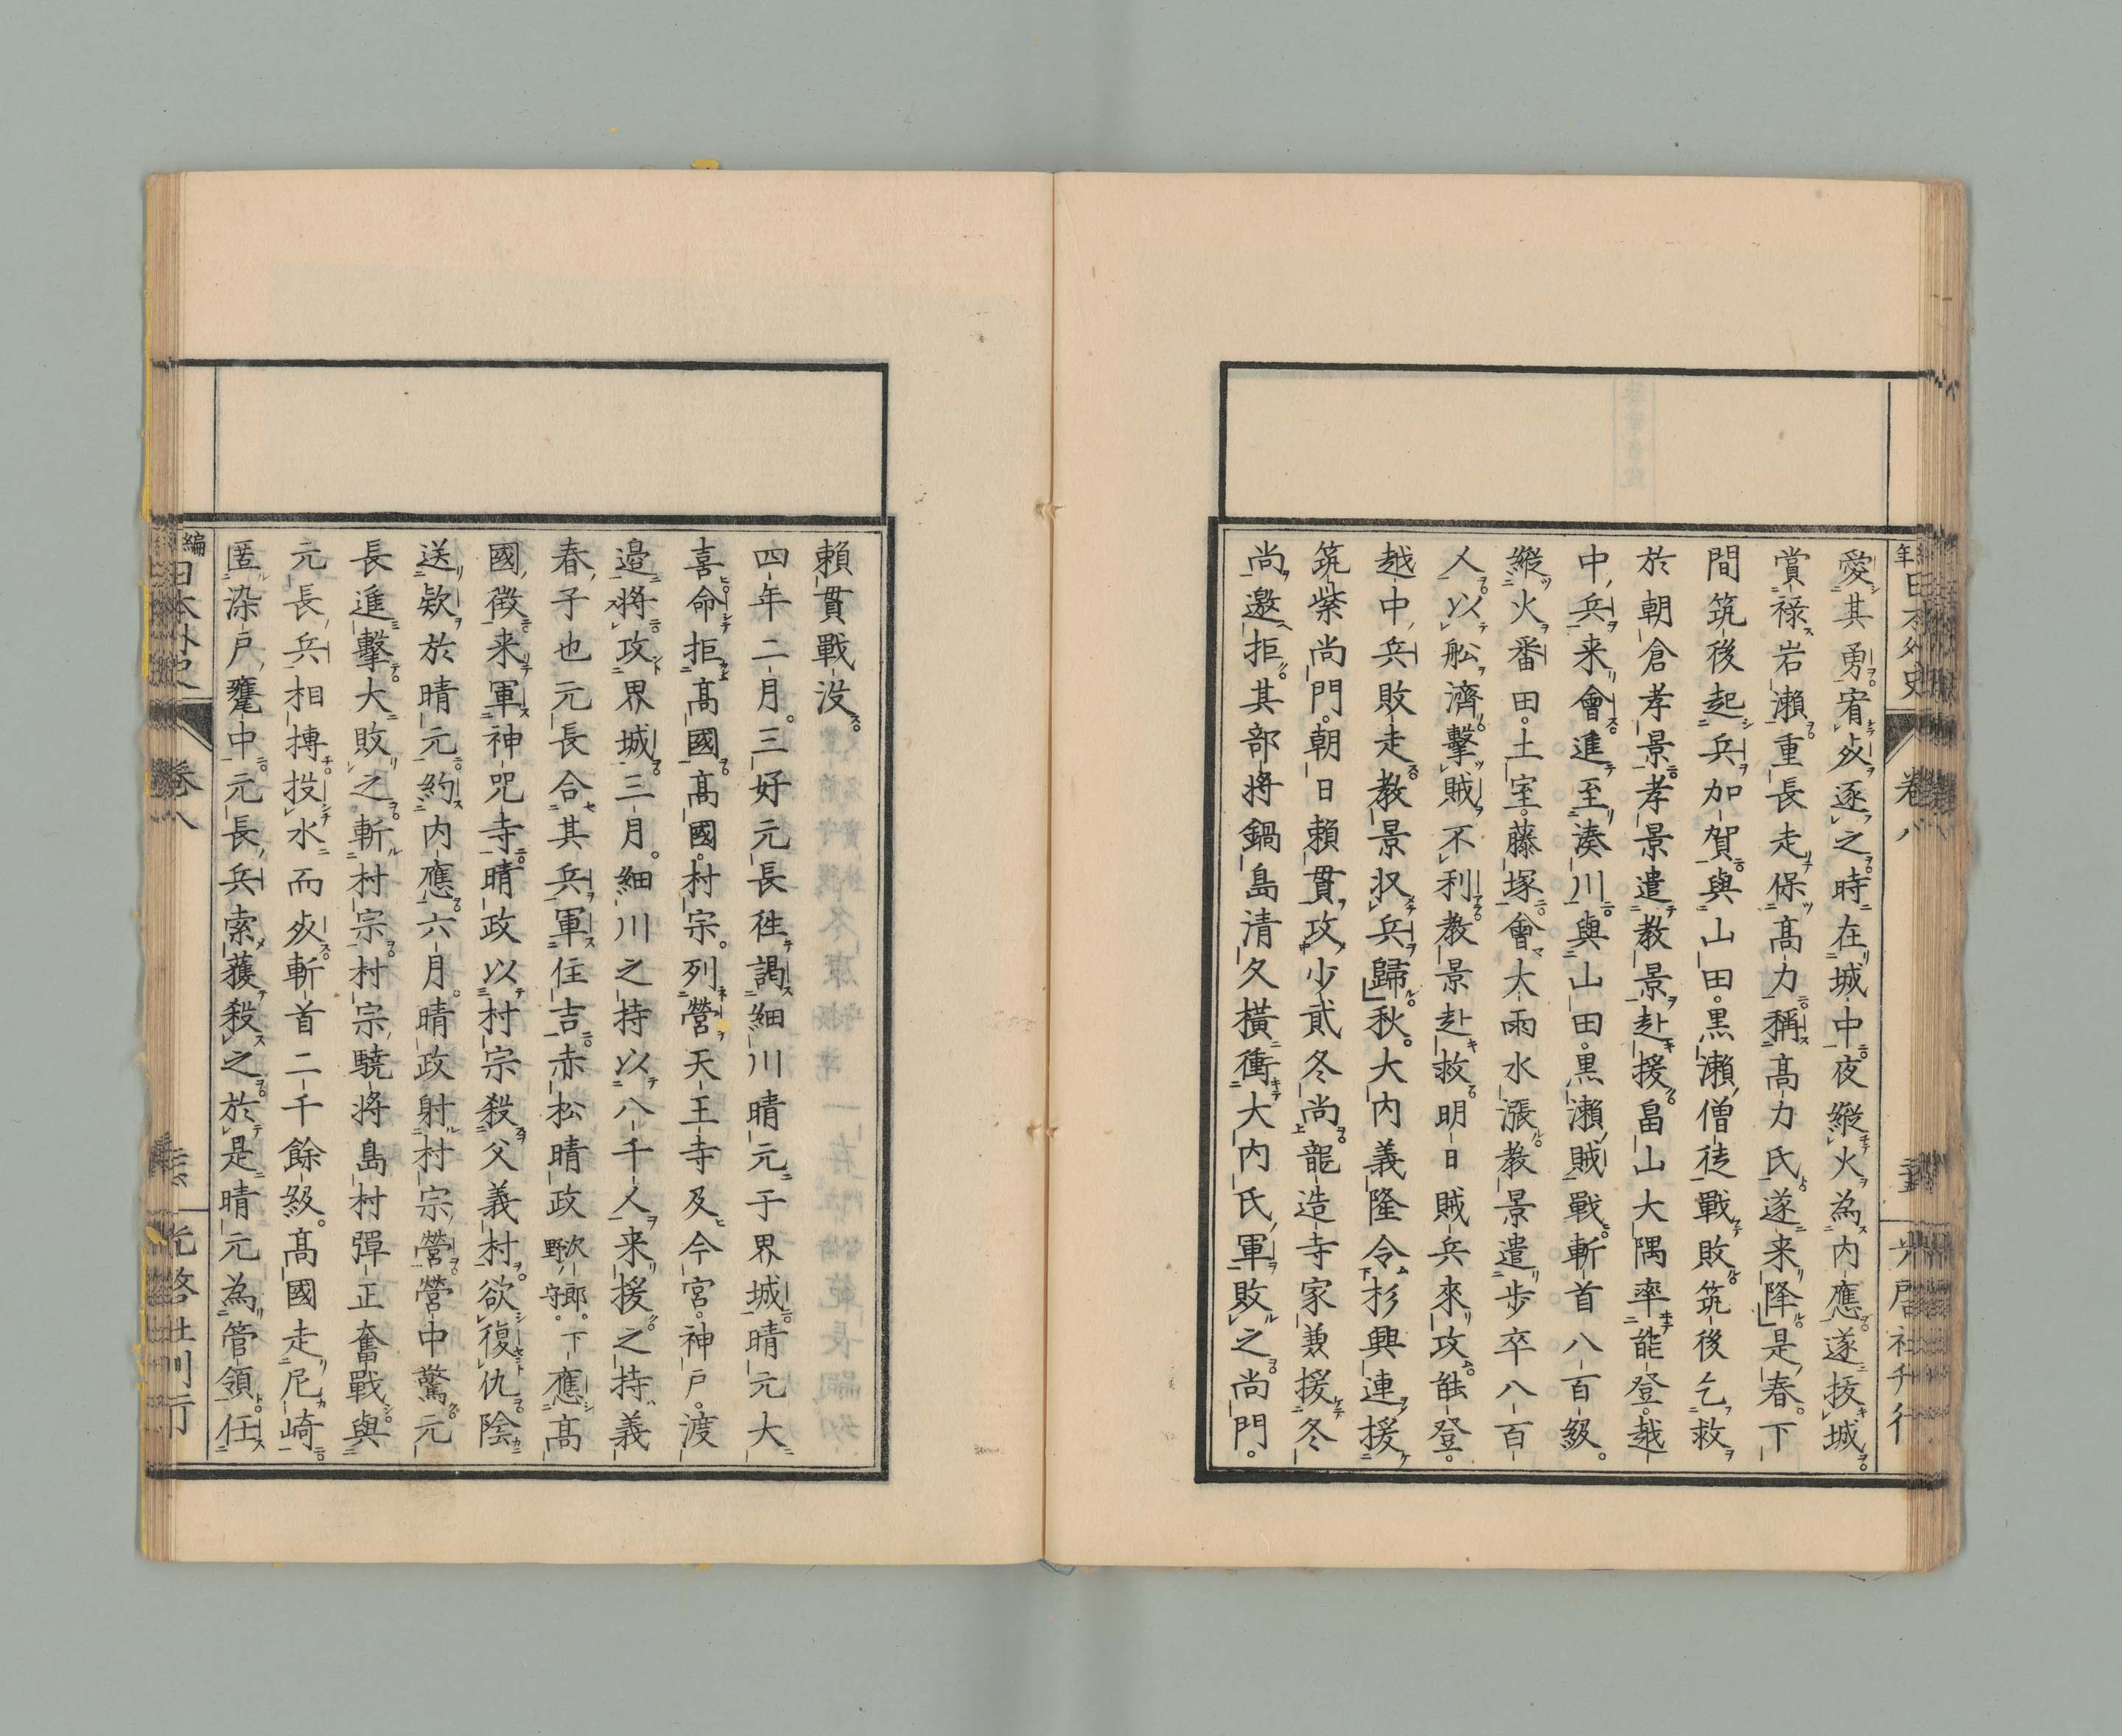 愛其勇宥死逐之時在城中夜縱火為内應遂拔城
賞禄岩瀬重長走保髙力稱髙力氏遂来降是春下
間筑後起兵加賀與山田黒瀬僧徒戰敗筑後乞救
於朝倉孝景孝景遣教景赴援畠山大隅率能登越
中兵来會進至湊川與山田黒瀬賊戰斬首八百級
縱火番田土室藤塚會大雨水漲教景遣歩卒八百
人以舩濟擊賊不利教景赴救明日賊兵來攻能登
越中兵敗走教景収兵歸秋大内義隆令杉興連援
筑紫尚門朝日頼貫攻少貳冬尚龍造寺家兼援冬
尚邀拒其部将鍋島清久橫衝大内氏軍敗之尚門
頼貫戰没
四年二月三好元長徃謁細川晴元于界城晴元大
喜命拒髙國髙國村宗列營天王寺及今宮神戸渡
邉将攻界城三月細川之持以八千人来援之持義
春子也元長合其兵軍住吉赤松晴政次郎下野守應髙
國徴来軍神呪寺晴政以村宗殺父義村欲復仇陰
送欵於晴元約内應六月晴政射村宗營營中驚元
長進擊大敗之斬村宗村宗驍将島村彈正奮戰與
元長兵相搏投水而死斬首二千餘級髙國走尼崎
匿染戸甕中元長兵索獲殺之於是晴元為管領任
編 日本外史 卷八 光啓社刊行